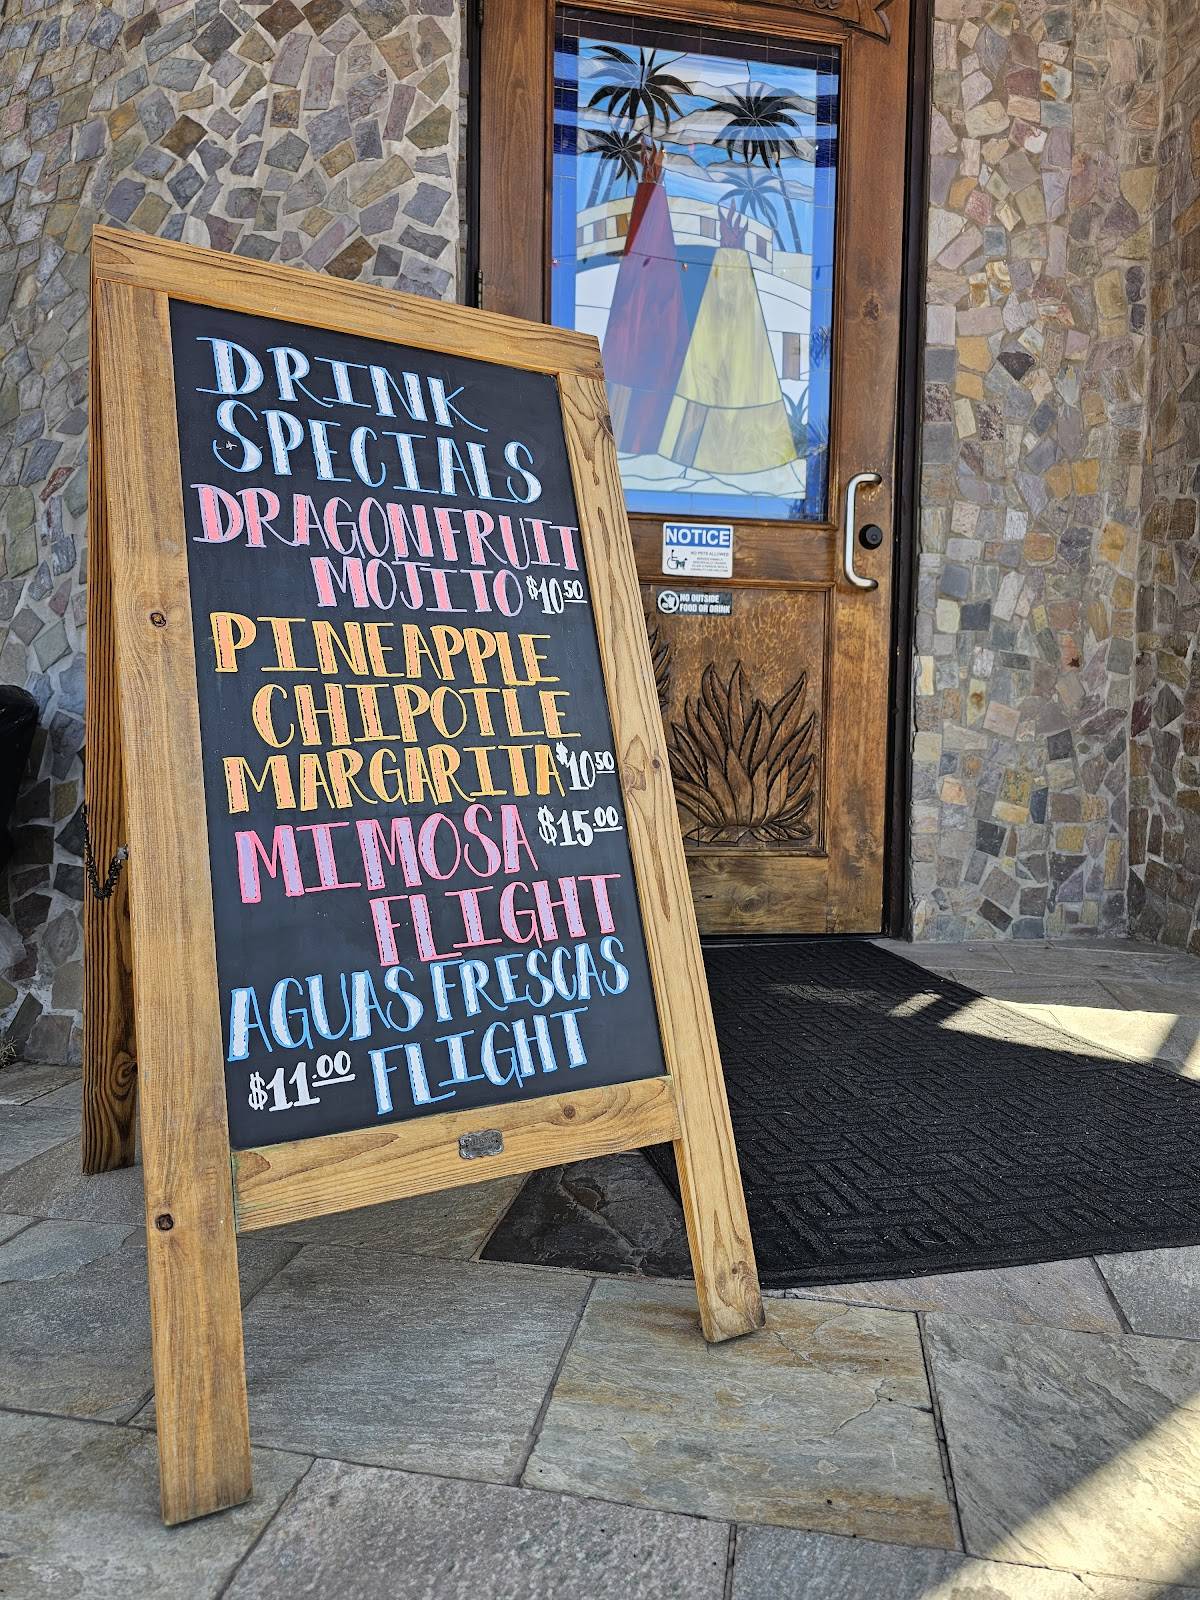 DRINK
SPECIALS
DRAGONFRUIT
MOJITO $10.50
PINEAPPLE
CHIPOTLE
MARGARITA $10.50
MIMOSA $15.00
FLIGHT
AGUAS FRESCAS
$11.00 FLIGHT
NOTICE
NO PETS ALLOWED
NO OUTSIDE
FOOD OR DRINK